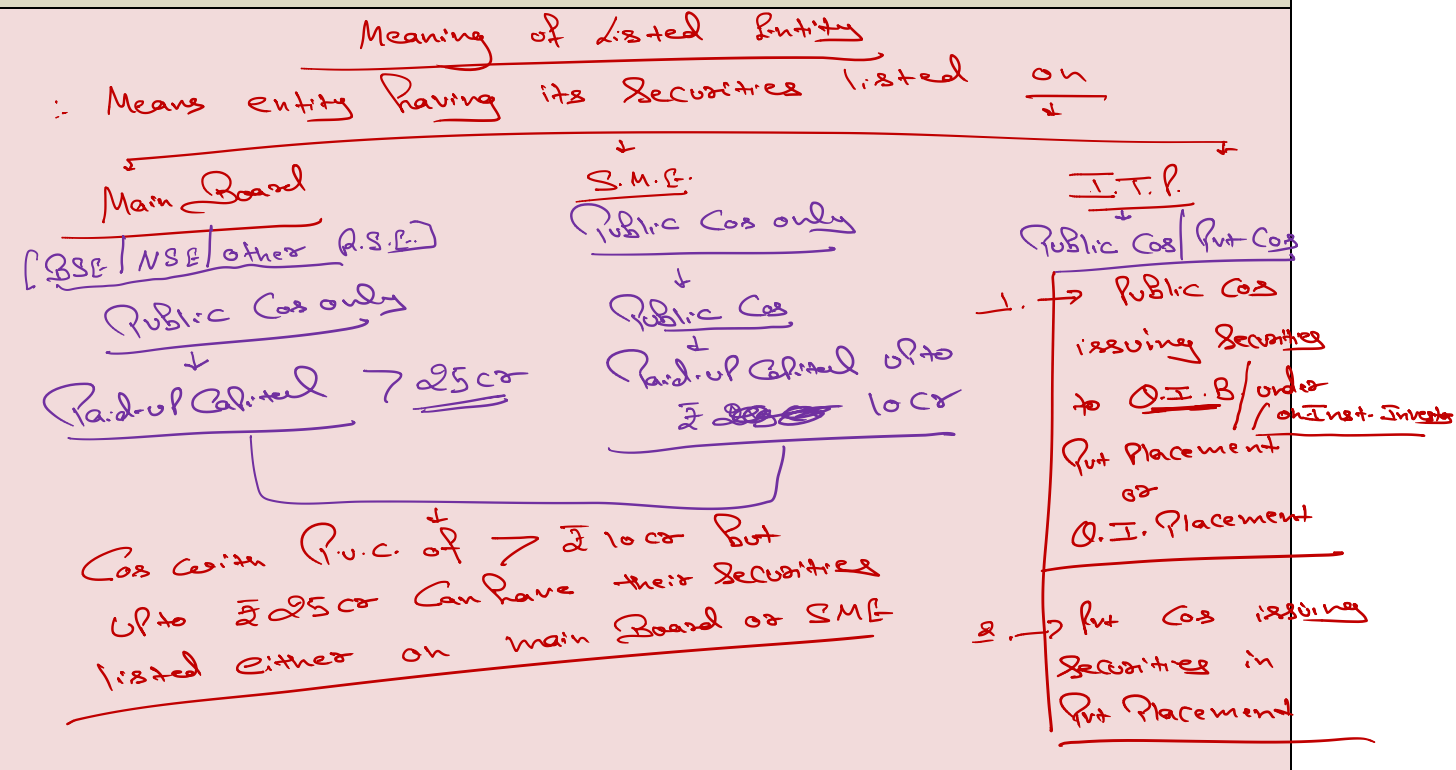 Meaning of Listed Entity
:- Means entity having its Securities listed on
Main Board
[BSE/NSE/other R.S.E.]
Public Cos only
Paid-up Capital > 25 cr
S.M.E.
Public Cos only
Public Cos
Paid-up Capital upto
₹ 10 cr
Cos with P.u.c. of > ₹ 10 cr but
upto ₹ 25 cr Can have their Securities
listed either on main Board or SME
I.T.P.
Public Cos/Pvt Cos
1. → Public Cos
issuing Securities
to Q.I.B/under
Pvt Placement
or
Q.I. Placement
2. → Pvt Cos issuing
Securities in
Pvt Placement